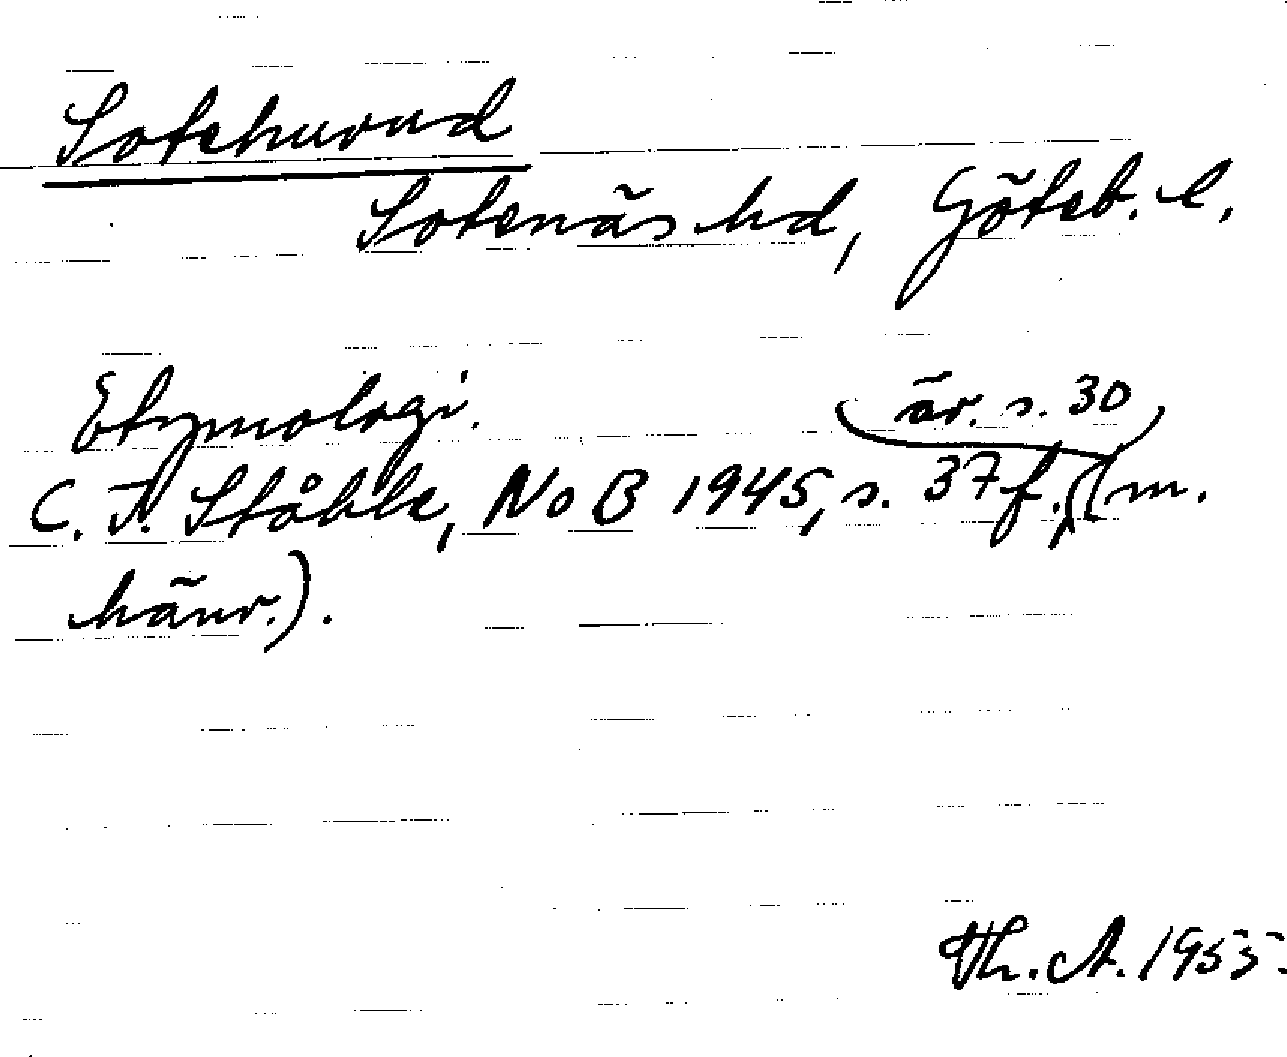 Sotehuvud
Sotenäs hd, Göteb. l.
Etymologi.
är. s. 30
C. I. Ståhle, NoB 1945, s. 37 f., (m.
hänv.).
Th. A. 1955.